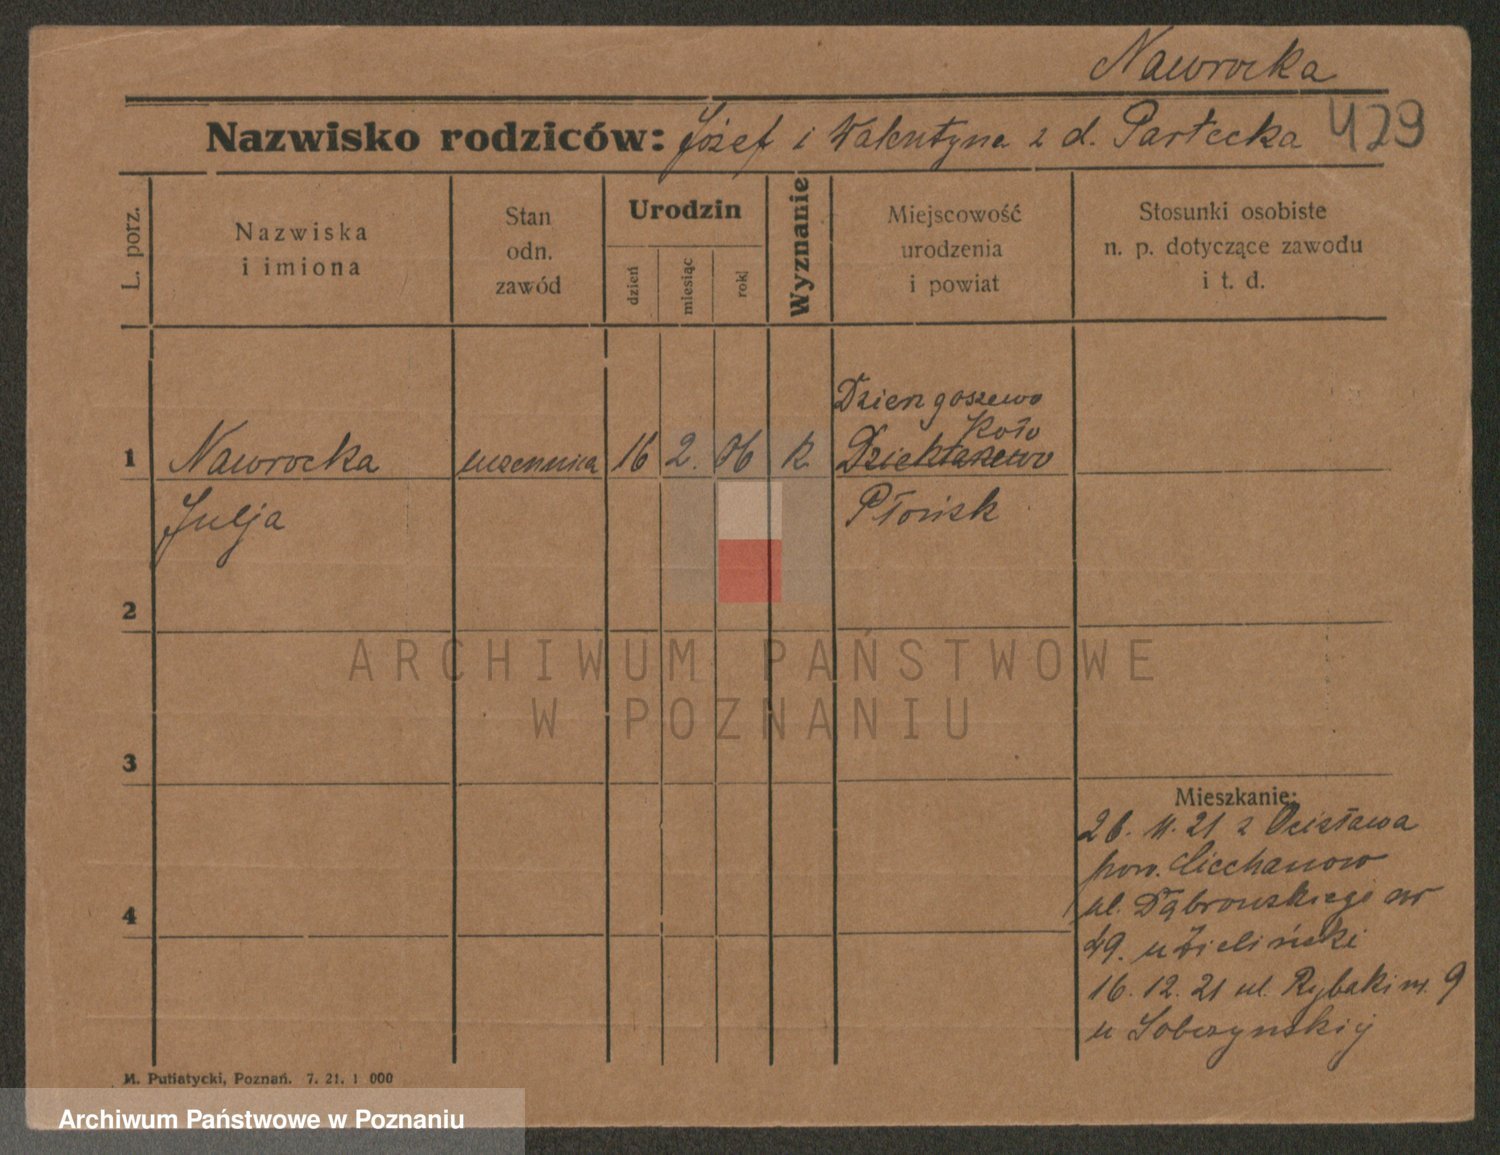 Nawrocka
Nazwisko rodziców: Józef i Walentyna z d. Partecka 429
L. porz.
Nazwiska
i imiona
Stan
odn.
zawód
Urodzin
dzień
miesiąc
rok
Wyznanie
Miejscowość
urodzenia
i powiat
Stosunki osobiste
n. p. dotyczące zawodu
i t. d.
Dziengoszewo
Koło
1 Nawrocka uczennica 16 2. 06 k. Dziektarzewo
Julja Płońsk
2
3
4
Mieszkanie:
26. 11. 21 z
pow. Ciechanow
ul. Dąbrowskiego nr
49. u Zieliński
16. 12. 21 ul. Rybaki nr. 9
u Sobczynskij
M. Putiatycki, Poznań. 7. 21. 1 000
ARCHIWUM PAŃSTWOWE
W POZNANIU
Archiwum Państwowe w Poznaniu